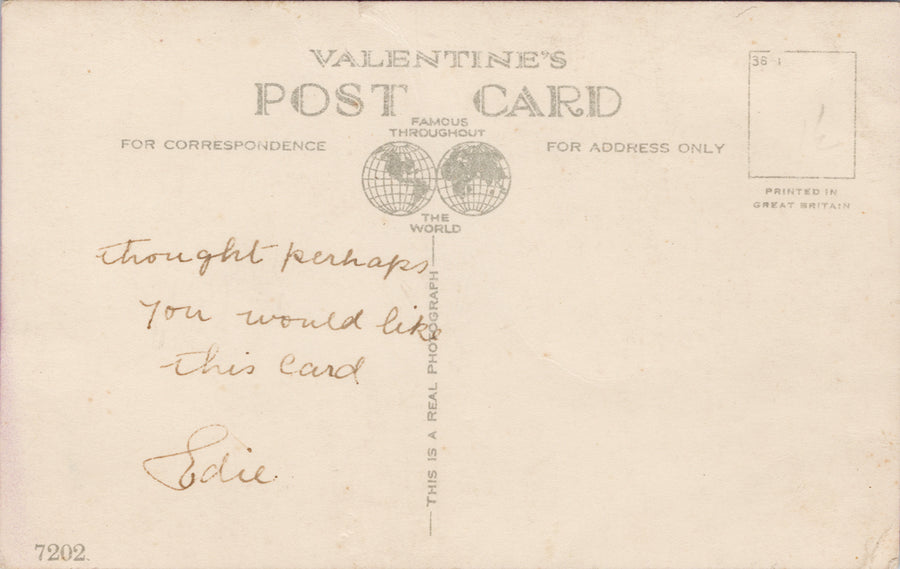 VALENTINE'S
POST CARD
FAMOUS
THROUGHOUT
THE
WORLD
FOR CORRESPONDENCE
FOR ADDRESS ONLY
36 1
PRINTED IN
GREAT BRITAIN
thought perhaps
you would like
this card
Edie
THIS IS A REAL PHOTOGRAPH
7202.